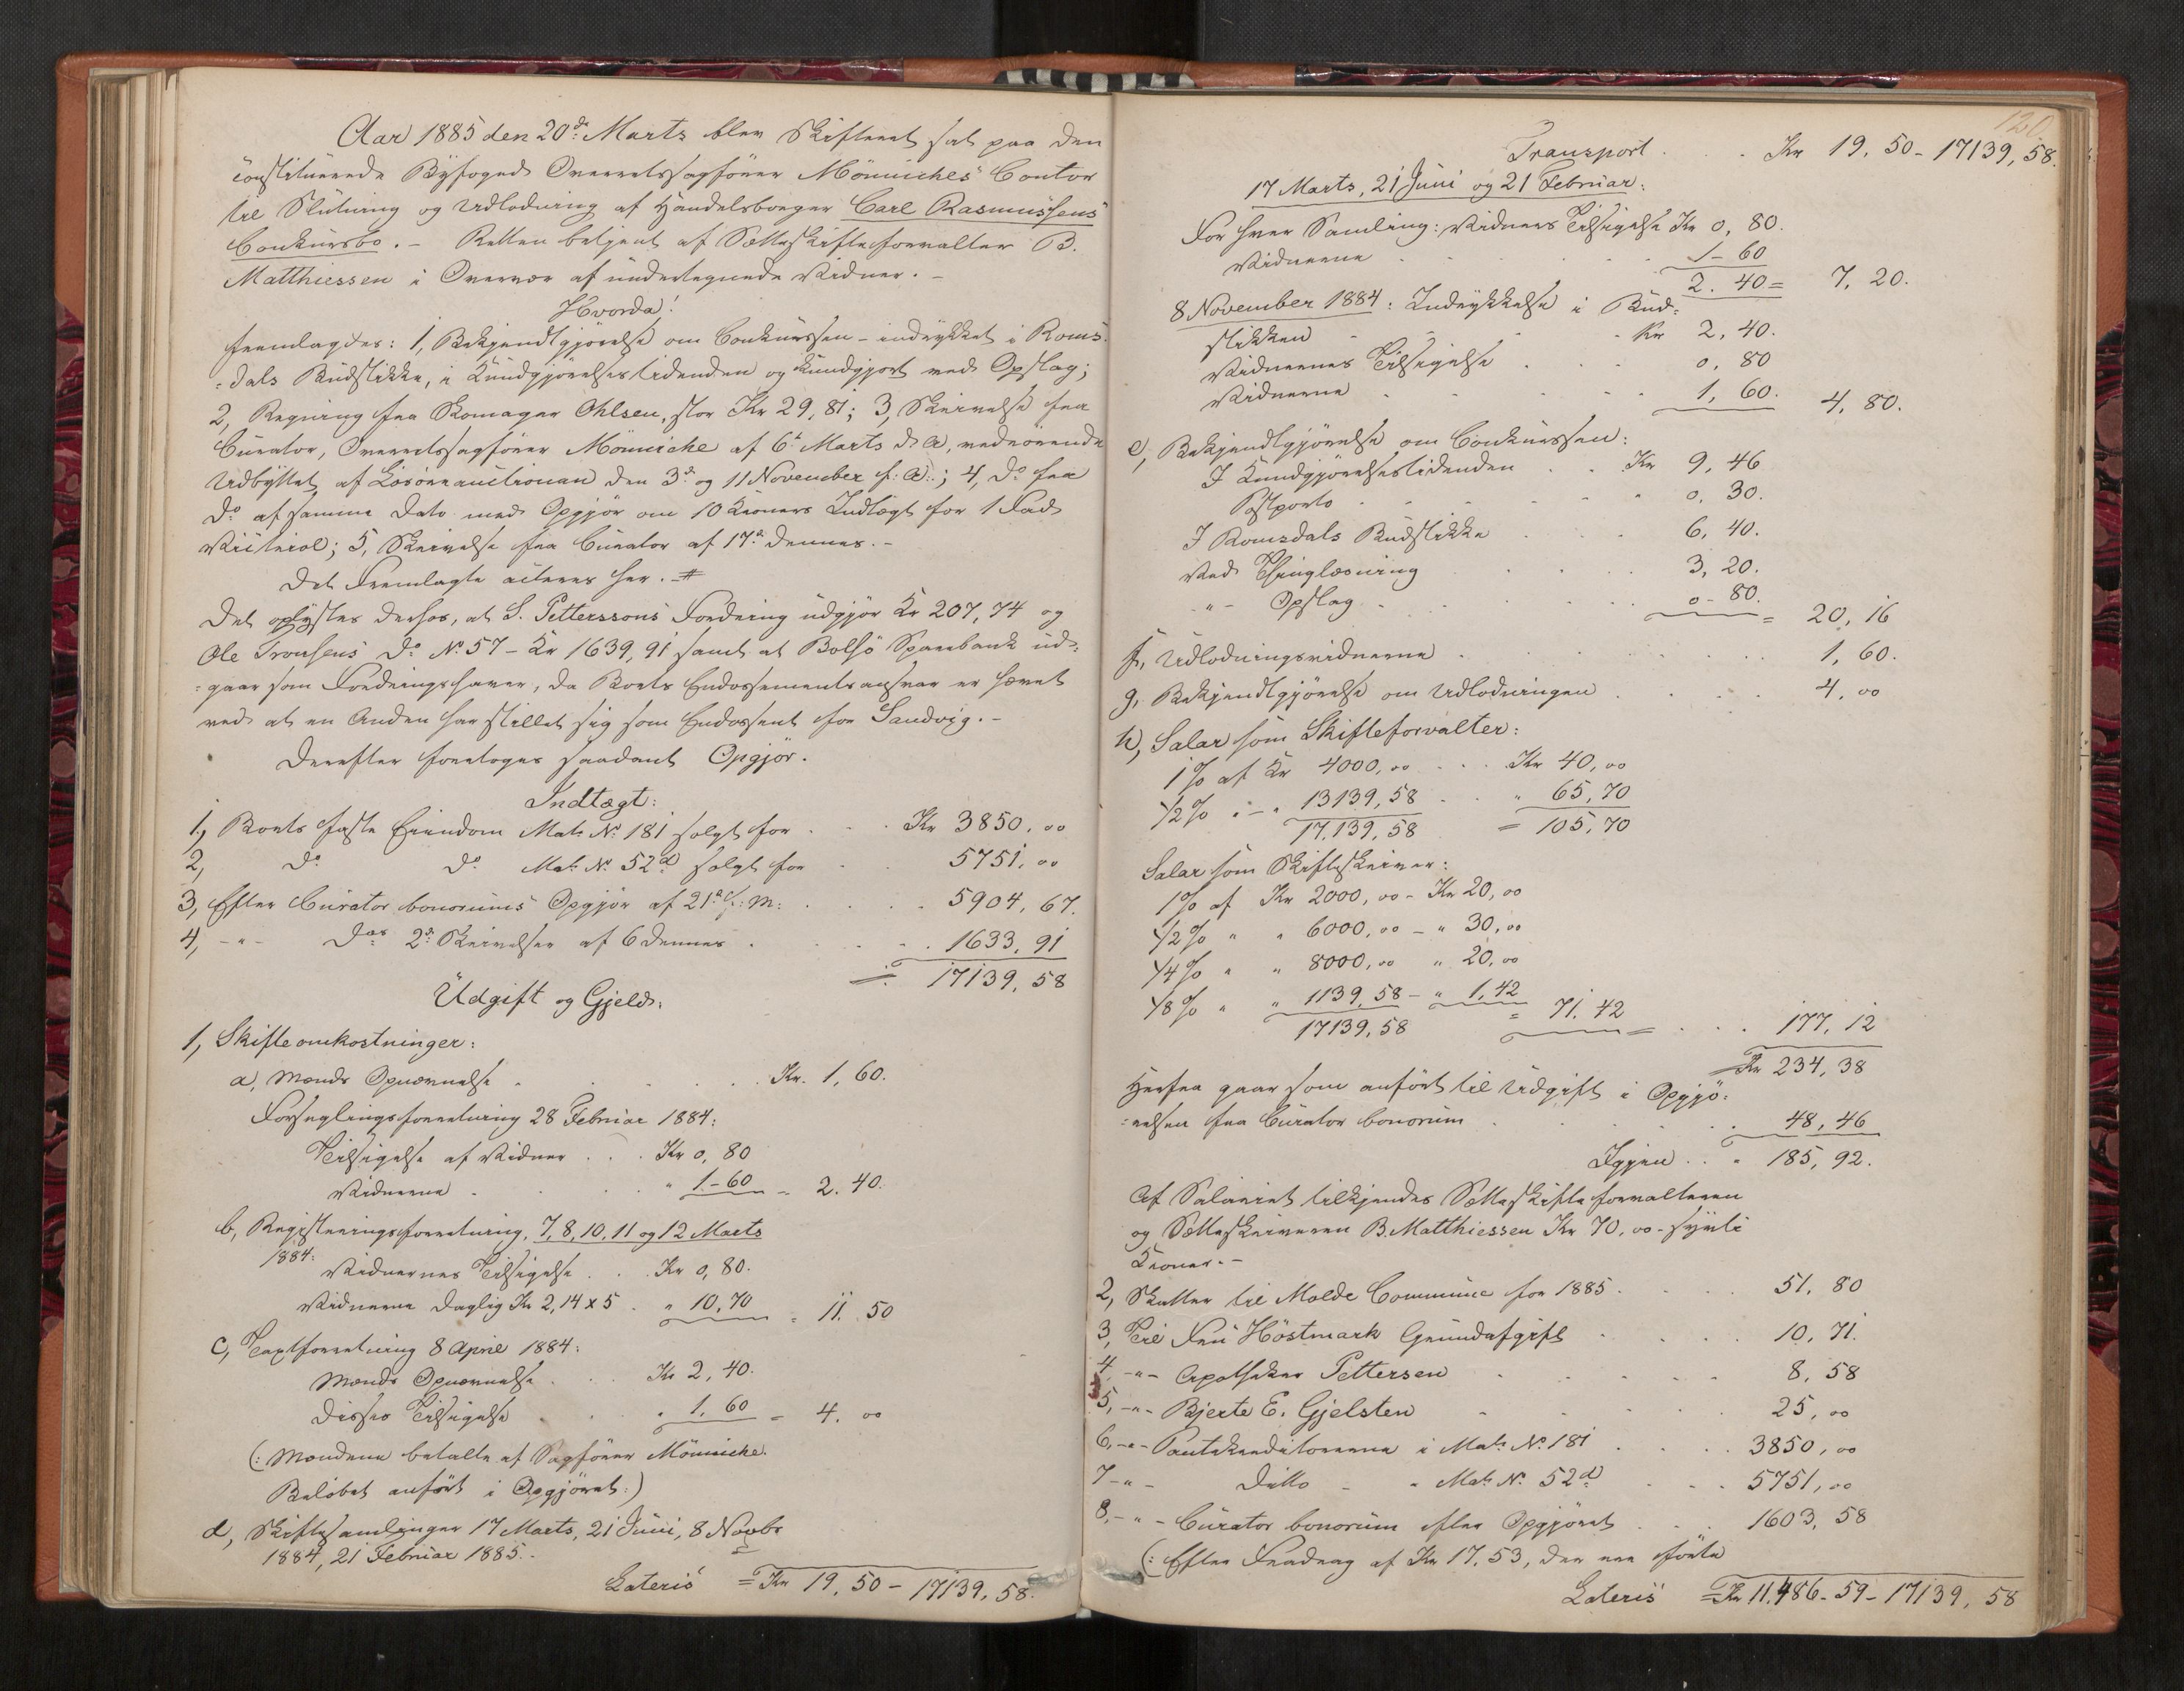 Aar 1885 den 20de Marts blev Skifteret sat paa den
constituerede Byfoged Overretssagförer Mönniches Contor
til Slutning og Udlodning af Handelsborger Carl Rasmussens
Concursbo. – Retten betjent af Sætteskifteforvalter B.
Matthiessen i Overvær af undertegnede Vidner. –
Hvorda!
fremlagdes: 1, Bekjendtgjörelse om Concursen – indrykket i Roms-
=dals Budstikke, i Kundgjörelsestidenden og kundgjort ved Opslag;
2, Regning fra Skomager Ohlsen, stor Kr 29,81; 3, Skrivelse fra
Curator, Overretssagförer Mönniche af 6t Marts d. A, vedrörende
Udbyttet af Lösöreauctionen den 3de og 11 November f: A:; 4, Do fra
Do af samme Dato med Opgjör om 10 Kroners Indtægt for 1 Fad
Vitriol; 5, Skrivelse fra Curator af 17de dennes. –
Det Fremlagte acteres her. – #
Det oplystes derhos, at S. Petterssons Fordring udgjör Kr 207,74 og
Ole Tronsens Do No 57 – Kr 1639,91 samt at Bolsö Sparebank ud-
=gaar som Fordringshaver, da Boets Endossementsansvar er hævet
ved at en Anden har stillet sig som Endossent for Sandvig. –
Derefter foretoges saadant Opgjör.
Indtægt:
1, Boets faste Eiendom Mat: No 181 solgt for . . . Kr 3850,00
2, Do Do Mat: No 52d solgt for . 5751,00
3, Efter Curator bonorums Opgjör af 21de f: M: . . . . 5904,67.
4, -"- Dos 2de Skrivelser af 6 dennes . . . . 1633,91
= 17139,58
Udgift og Gjeld:
1, Skifteomkostninger:
a, Mænds Opnævnelse . . . . . Kr. 1,60.
Forseglingsforretning 28 Februar 1884:
Tilsigelse af Vidner . . . Kr 0,80
Vidnerne . . . " 1-60 = 2.40.
b, Registreringsforretning, 7, 8, 10, 11 og 12 Marts
1884: Vidnernes Tilsigelse . . Kr 0,80.
Vidnerne daglig Kr 2,14 x 5 . " 10,70 = 11.50
c, Taxtforretning 8 April 1884:
Mænds Opnævnelse . . . Kr 2,40.
Disses Tilsigelse . . . " 1,60 = 4.00
(: Mændene betalte af Sagförer Mönniche.
Belöbet anfört i Opgjöret:)
d, Skiftesamlinger 17 Marts, 21 Juni, 8 Novbr
1884, 21 Februar 1885. –
Lateris = Kr 19,50 – 17139,58.
120
Transport . . . Kr 19,50 – 17139,58.
17 Marts, 21 Juni og 21 Februar:
For hver Samling: Vidners Tilsigelse Kr 0,80.
Vidnerne . . . . . 1-60
2.40 = 7,20.
8 November 1884: Indrykkelse i Bud-
stikken . . . Kr 2,40.
Vidnernes Tilsigelse . . . 0,80
Vidnerne . . . . . 1,60. 4,80.
e, Bekjendtgjörelse om Concursen:
I Kundgjörelsestidenden . . Kr 9,46
Postporto . . . . . " 0.30.
I Romsdals Budstikke . . . 6,40.
Ved Thinglæsning . . . . 3,20.
-"- Opslag . . . . . 0-80. = 20,16
f, Udlodningsvidnerne . . . . . 1,60.
g, Bekjendtgjörelse om Udlodningen . . . . 4,00
h, Salær som Skifteforvalter:
1% af Kr 4000,00 . . . Kr 40,00
1/2% " - " 13139,58 . . " 65,70
17,139,58 = 105,70
Salær som Skifteskriver:
1% af Kr 2000,00 – Kr 20,00
1/2% " " 6000,00 – " 30,00
1/4% " " 8000,00 " 20,00
1/8% " " 1139,58 – " 1,42 = 71.42
17139,58 = . . . 177,12
Kr 234,38
Herfra gaar som anfört til Udgift i Opgjö-
=relsen fra Curator bonorum . . . . 48,46
Igjen . . " 185,92.
Af Salæriet tilkjendes Sætteskifteforvalteren
og Sætteskriveren B. Matthiessen Kr 70,00 – sytti
Kroner. –
2, Skatter til Molde Commune for 1885 . . . 51,80
3, Til Fru Höstmark Grundafgift . . . . 10,71.
4, -"- Apotheker Pettersen . . . . . 8,58
5, -"- Bjerte E. Gjelsten . . . . 25,00
6, -"- Pantekreditorerne i Mat: No 181 . . . . 3850,00
7 -"- Ditto - " Mat: No 52d . . . 5751,00
8, -"- Curator bonorum efter Opgjöret . . . 1603,58
(: Efter Fradrag af Kr 17,53, der ere förte
Lateris = Kr 11,486-59 – 17139,58